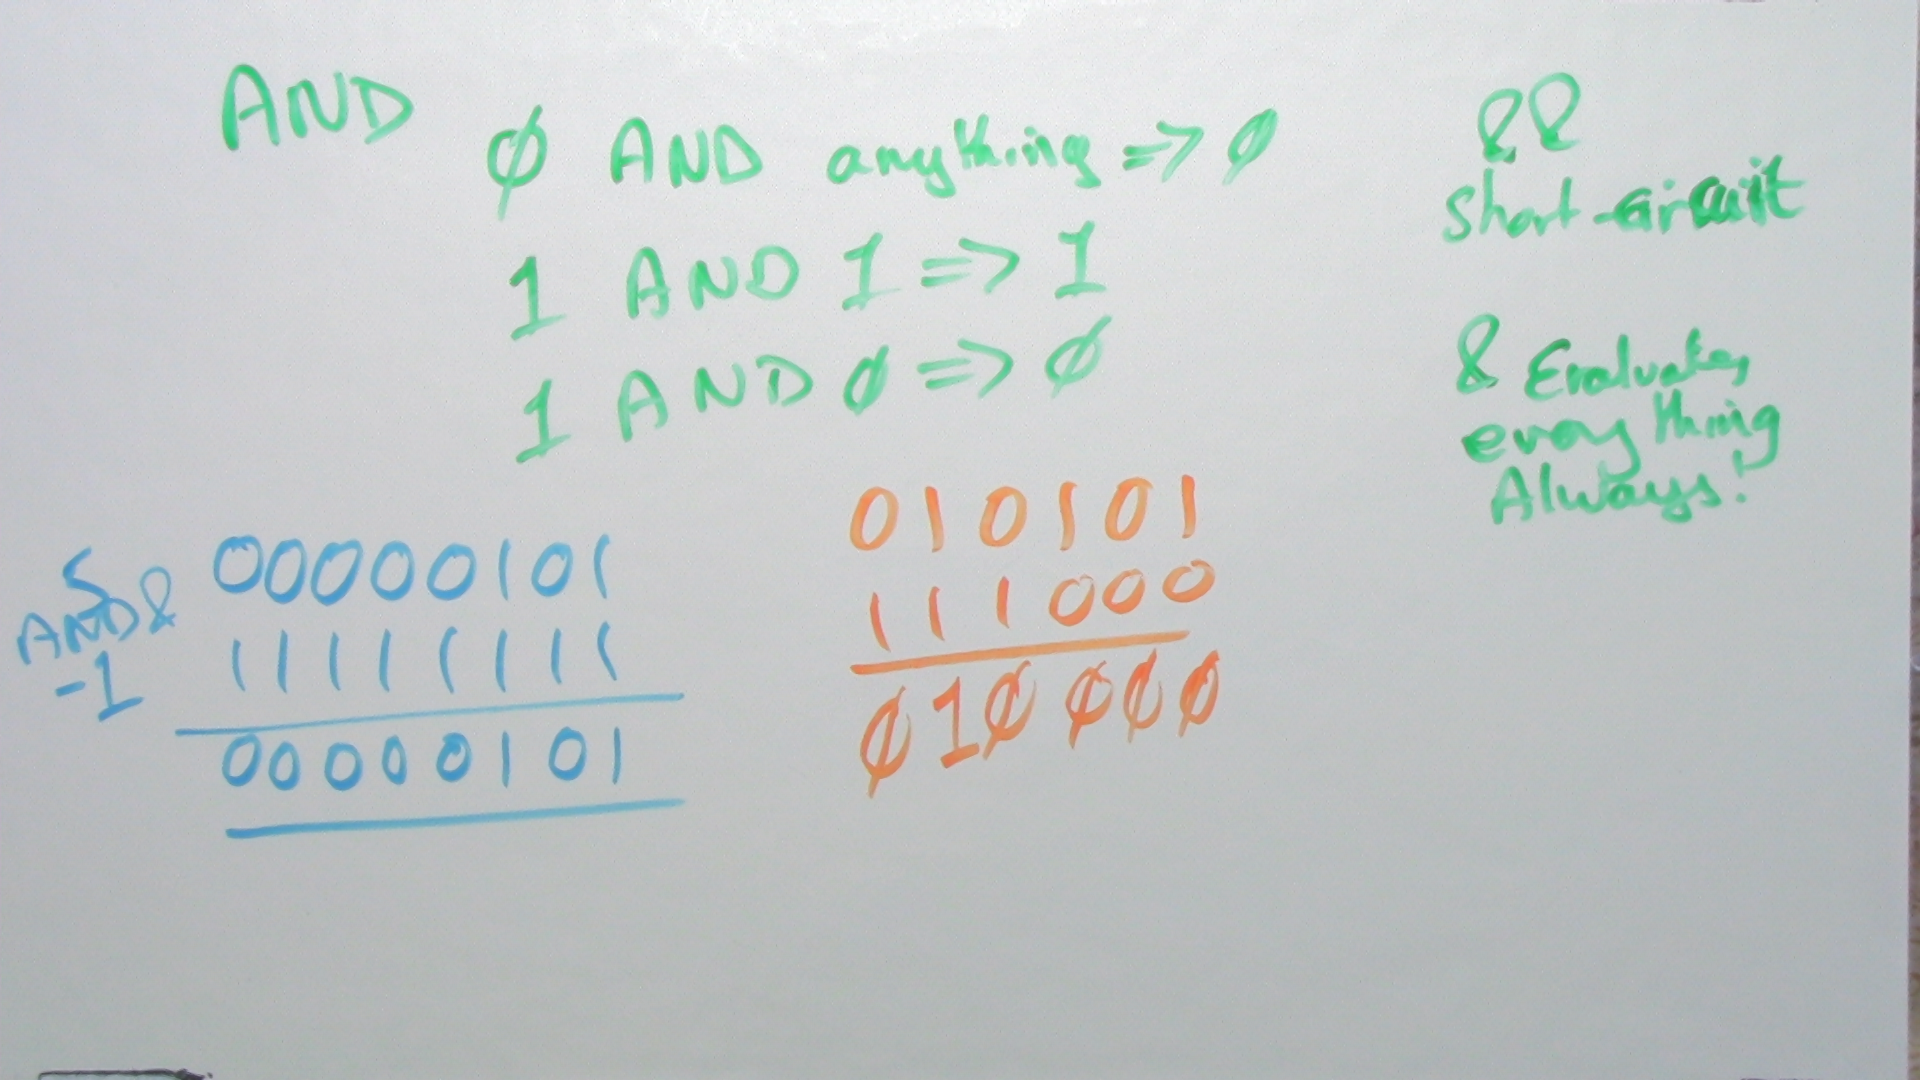 AND
0 AND anything => 0
1 AND 1 => 1
1 AND 0 => 0
&&
Short-circuit
& Evaluates
everything
Always!
5 00000101
AND &
-1 11111111
00000101
010101
111000
010000